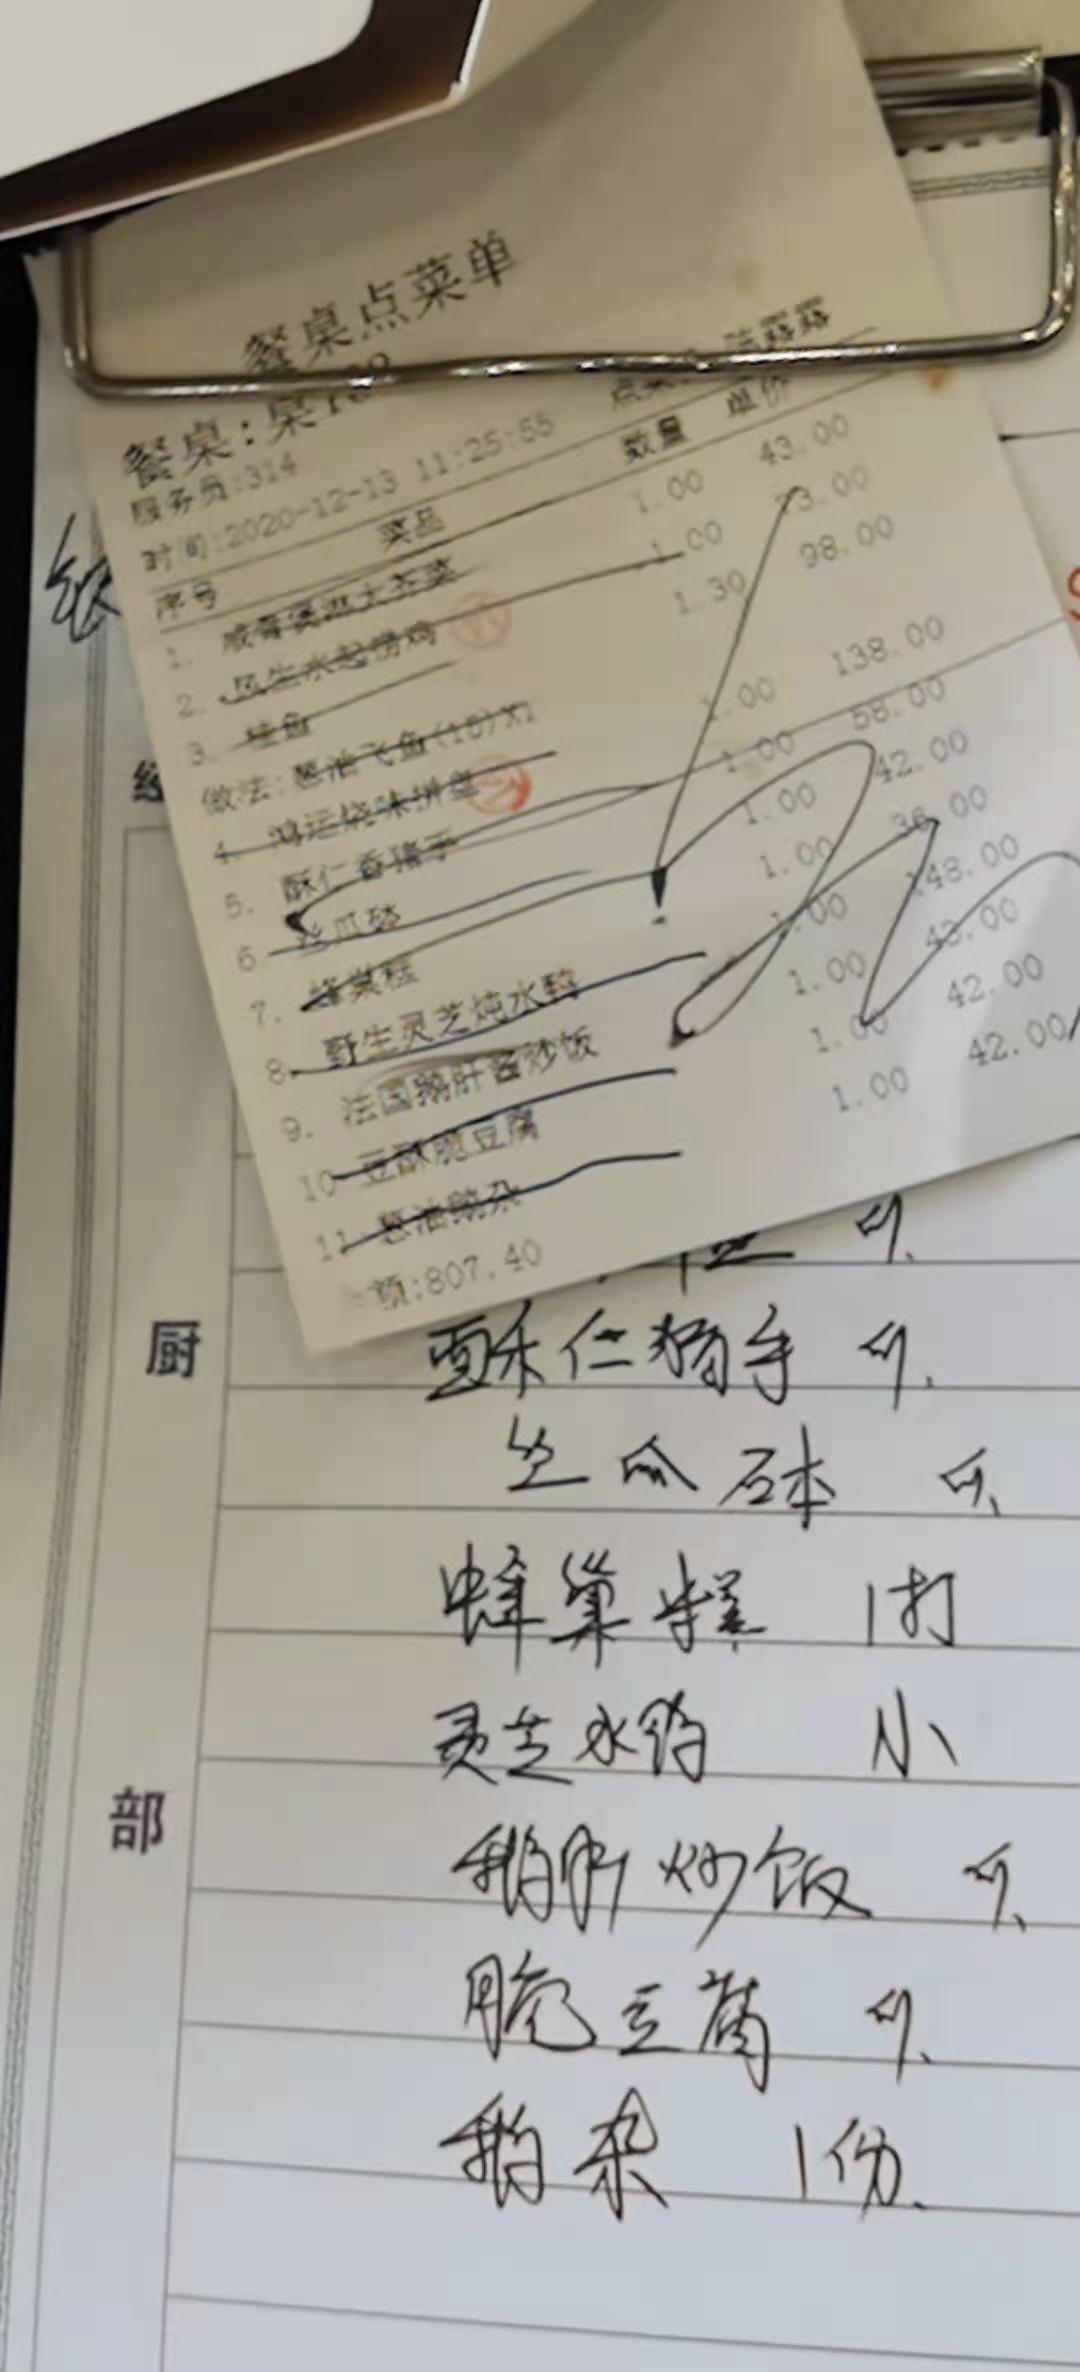 餐桌点菜单
餐桌:桌1
服务员:314
时间:2020-12-13 11:25:55
序号 菜品 数量 单价
1. 咸骨煲淋大芥菜 1.00 43.00
2. 风生水起捞鸡 1.00 93.00
3. 桂鱼 1.30 98.00
做法:葱油飞鱼(18)X1
4. 鸿运烧味拼盘 1.00 138.00
5. 酥仁香猪手 1.00 58.00
6 丝瓜砵 1.00 42.00
7. 蜂巢糕 1.00 36.00
8. 野生灵芝炖水鸭 1.00 148.00
9. 法国鹅肝酱炒饭 1.00 43.00
10 豆酥脆豆腐 1.00 42.00
11 葱油鹅杂 1.00 42.00
额:807.40
酥仁猪手
丝瓜砵
厨
蜂巢糕 1打
灵芝水鸭 小
部
鹅肝炒饭
脆豆腐
鹅杂 1份